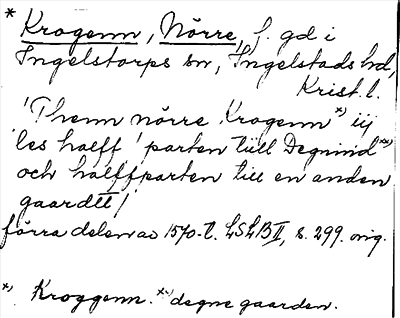 * Krogenn, Nörre, f. gd i
Ingelstorps sn, Ingelstads hd,
Krist. l.
'Thenn nörre Krogenn *) iij
les halff' parten tüll Degnind **)
och halffparten till en anden
gaardtt /'
förra delen av 1570-t. LSLB II, s. 299. orig.
*) Kroggenn. **) degne gaarden.